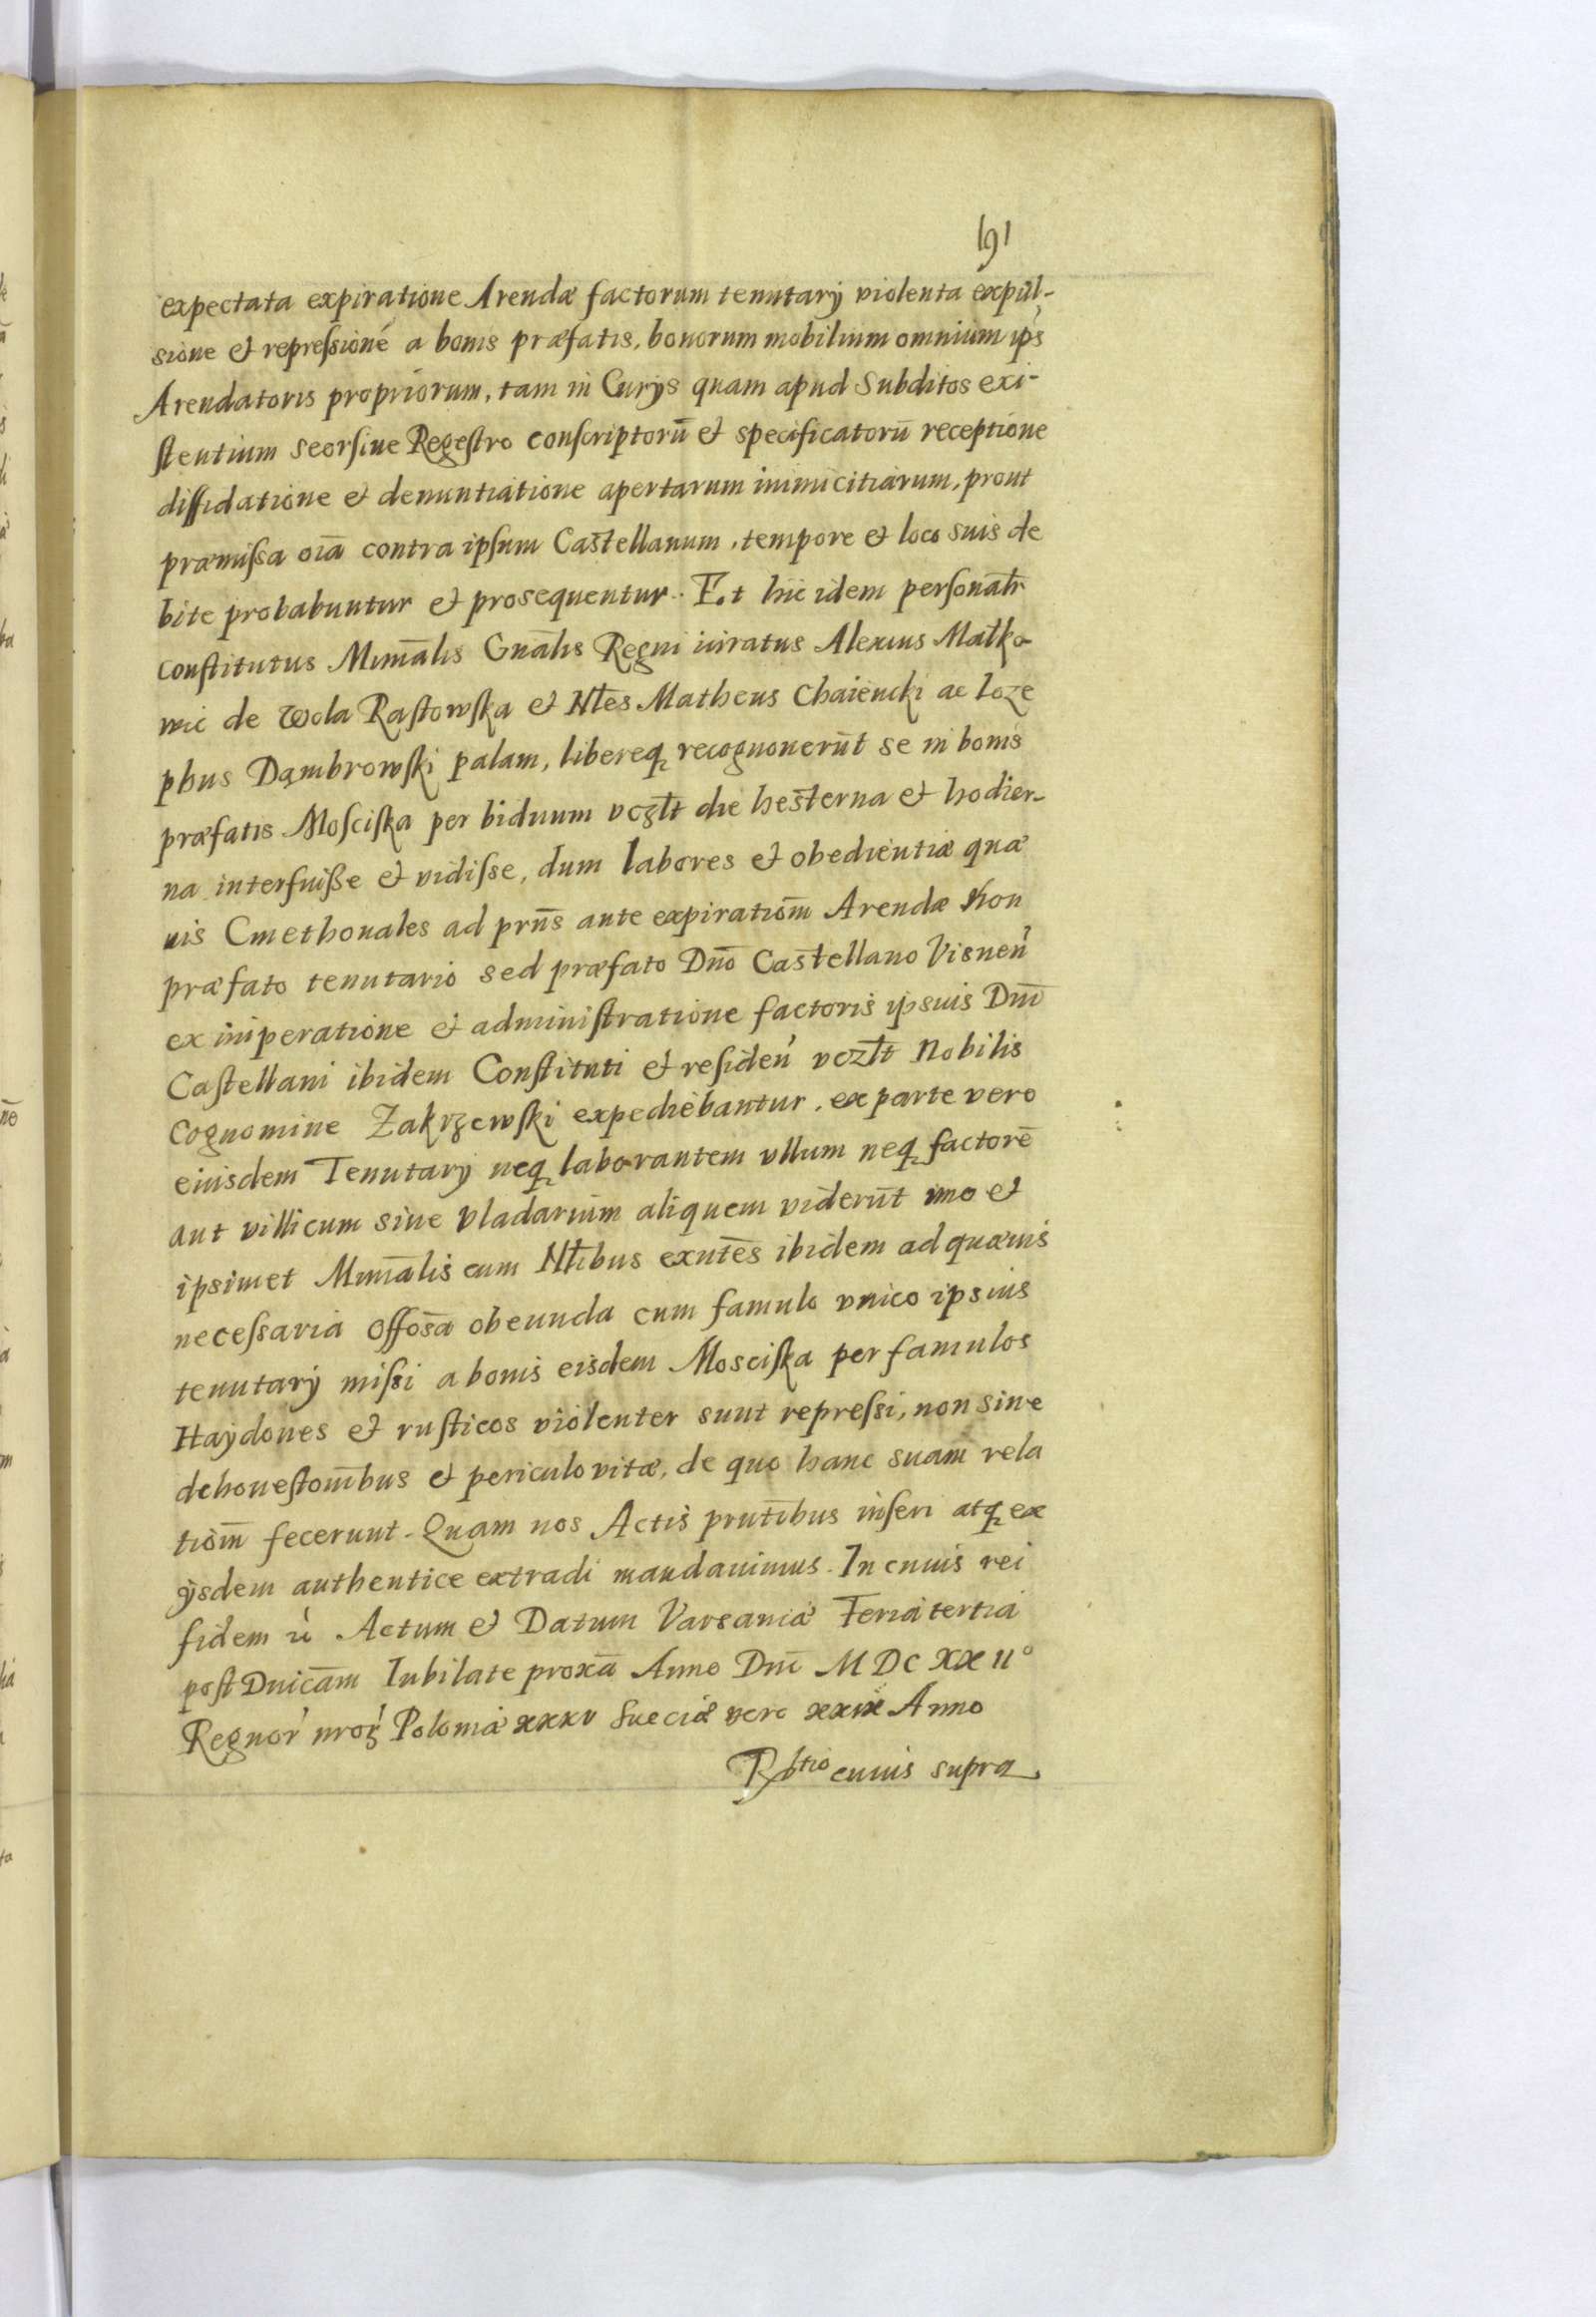 191
expectata expiratione Arendæ factorum tenutarÿ violenta expul-
sione et repreſsioné a bonis præfatis, bonorum mobilium omnium ips
Arendatoris propriorum, tam in Curÿs quam apud Subditos exi-
ſtentium seorſiue Regeſtro conſcriptorū et specificatorū receptione
diffidatione et denuntiatione apertarum inimicitiarum, prout
præmiſsa oīa contra ipſum Castellanum, tempore et loco suis de
bite probabuntur et prosequentur. Et hic idem perſonalr
conſtitutus Minālis Gnālis Regni iuratus Alexius Malko-
wic de Wola Raſtowſka et Nles Matheus Chaiencki ac Ioze
phus Dąmbrowſki palam, libereq recognouerūt se in bonis
præfatis Moſciſka per biduum vczlt die hesterna et hodier-
na interfuiſse et vidiſse, dum labores et obedientiæ quæ
uis Cmethonales ad prns ante expirationm Arendæ Non
præfato tenutario sed præfato Dno Castellano Viſnen
ex imperatione et adminiſtratione factoris ipsuis Dni
Caſtellani ibidem Conſtituti et reſiden vczlt Nobilis
Cognomine Zakrzewſki expediebantur, ex parte vero
eiusdem Tenutarÿ neq laborantem vllum neq factorē
aut villicum siue Vladarium aliquem viderūt imo et
ipsimet Minālis cum Nlibus exutēs ibidem ad quæuis
neceſsaria Offosā obeunda cum famulo vnico ipsius
tenutarÿ miſsi a bonis eisdem Mosciſka per famulos
Haÿdones et ruſticos violenter sunt repreſsi, non sine
dehoneſtonībus et periculo vitæ, de quo hanc suam rela
tiōm fecerunt. Quam nos Actis prntībus inſeri atq ex
ÿsdem authentice extradi mandauimus. In cuius rei
fidem Actum et Datum Varsauiæ Feria tertia
poſt Dnicām Iubilate proxā Anno Dni MDCXXII°
Regnor nror Poloniæ xxxv Sueciæ vero xxix Anno
Rltio cuius supra